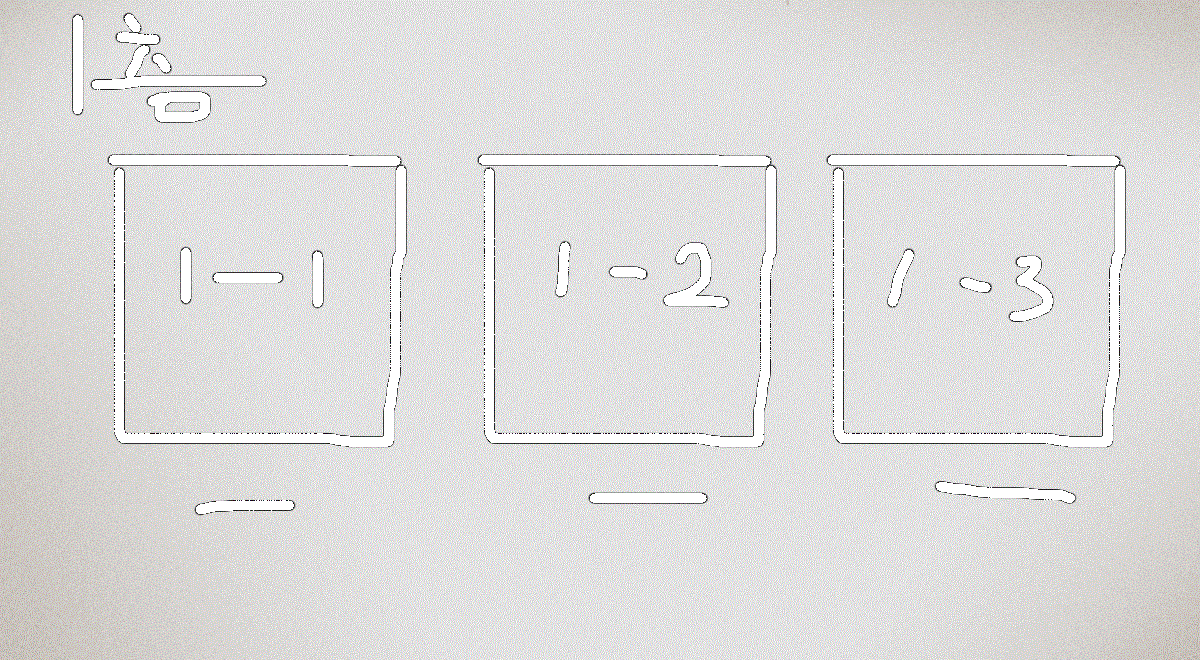 1층
1-1 1-2 1-3